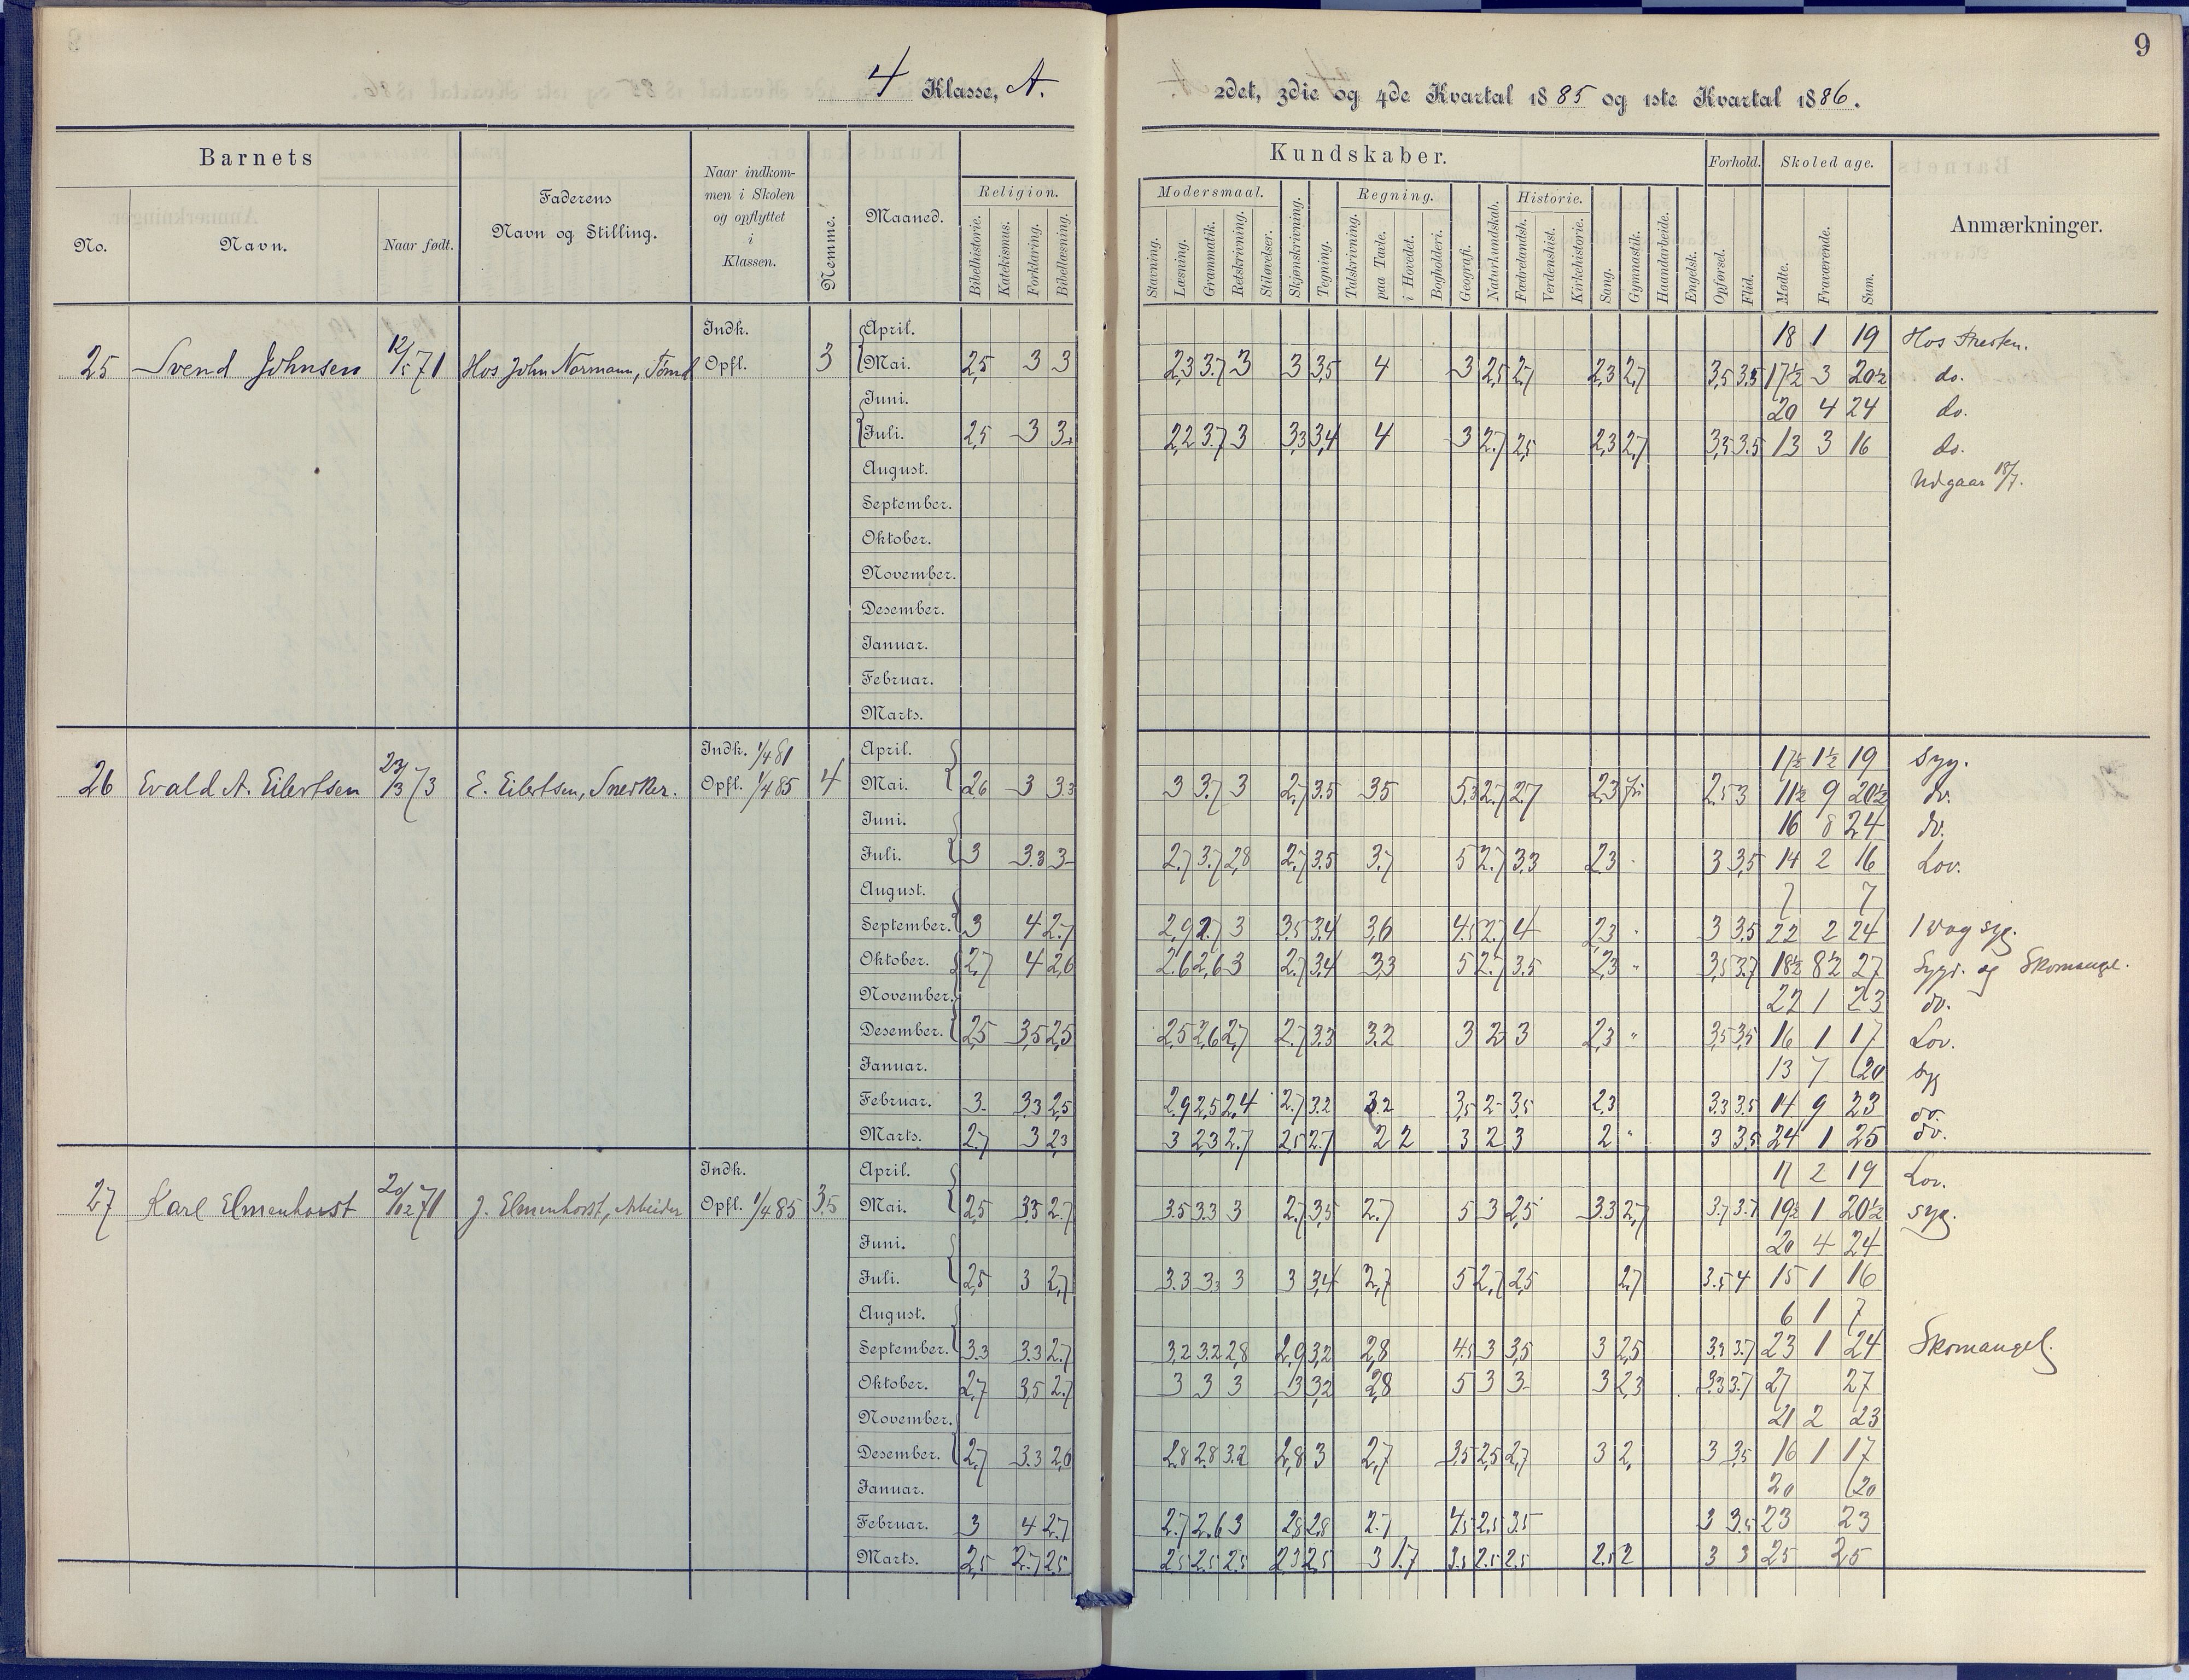 9
4 Klasse, A.
2det, 3die og 4de Kvartal 1885 og 1ste Kvartal 1886.
Barnets
No.
Navn.
Naar født.
Faderens
Navn og Stilling.
Naar indkom-
men i Skolen
og opflyttet
i
Klassen.
Nemme.
Maaned.
Religion.
Bibelhistorie.
Katekismus.
Forklaring.
Bibellæsning.
Kundskaber.
Modersmaal.
Stavning.
Læsning.
Grammatik.
Retskrivning.
Stiløvelser.
Skjønskrivning.
Tegning.
Regning.
Talskrivning.
paa Tavle.
i Hovedet.
Bogholderi.
Geografi.
Naturkundskab.
Historie.
Fædrelandsh.
Verdenshist.
Kirkehistorie.
Sang.
Gymnastik.
Haandarbeide.
Engelsk.
Forhold.
Opførsel.
Flid.
Skoledage.
Mødte.
Fraværende.
Sum.
Anmærkninger.
25 Svend Johnsen 12/5 71 Hos John Normann, Tømd
Indk.
Opfl. 3
April. 18 1 19
Mai. 2,5 3 3 2,3 3.7 3 3 3,5 4 3 2,5 2,7 2,3 2,7 3,5 3.5 17½ 3 20½ do.
Juni. 20 4 24 do.
Juli. 2,5 3 3. 2,2 3.7 3 3,3 3,4 4 3 2.7 2,5 2,3 2,7 3,5 3.5 13 3 16 do.
August. Udgaar 18/7.
September.
Oktober.
November.
Desember.
Januar.
Februar.
Marts.
26 Evald A. Eilertsen 23/3 73 E. Eilertsen, Snerker.
Indk. 1/4 81
Opfl. 1/4 85 4
April. 17½ 1½ 19 Syg.
Mai. 26 3 3.3 3 3.7 3 2,7 3.5 35 5,3 2.7 2.7 2.3 fri 2.5 3 11½ 9 20½ do.
Juni. 16 8 24 do.
Juli. 3 3.3 3 2.7 3.7 2,8 2.7 3.5 3.7 5 2.7 3.3 2.3 3 3,5 14 2 16 Lov.
August. 7 7
September. 3 4 2.7 2.9 2.7 3 3.5 3.4 3,6 4.5 2.7 4 2,3 " 3 3.5 22 2 24 1 dag syg.
Oktober. 2,7 4 2,6 2.6 2,6 3 2.7 3.4 3,3 5 2.7 3.5 2,3 " 3,5 3.7 18½ 8½ 27 Sygd. og Skomangel.
November. 22 1 23 do.
Desember. 2,5 3,5 2,5 2,5 2,6 2,7 2.7 3.3 3.2 3 2 3 2,3 " 3,5 3,5 16 1 17 Lov.
Januar. 13 7 20 Syg
Februar. 3. 3.3 2,5 2.9 2,5 2,4 2.7 3.2 3.2 3,5 2 3,5 2.3 3.3 3.5 14 9 23 do.
Marts. 2.7 3 2,3 3 2,3 2.7 2,5 2.7 2 2 3 2 3 2 " 3 3.5 24 1 25 do.
27 Karl Elmenhorst 20/12 71 J. Elmenhorst, Arbeider
Indk.
Opfl. 1/4 85 3.5
April. 17 2 19 Lov.
Mai. 2,5 3,5 2.7 3.5 3.3 3 2.7 3,5 2.7 5 3 2,5 3.3 2,7 3.7 3.7 19½ 1 20½ syg.
Juni. 20 4 24
Juli. 2,5 3 2,7 3.3 3,3 3 3 3,4 2,7 5 2,7 2,5 2,7 3.5 4 15 1 16
August. 6 1 7
September. 3.3 3.3 2.7 3,2 3.2 2,8 2,9 3,2 2,8 4.5 3 3,5 3 2,5 3,3 3.7 23 1 24 Skomangel.
Oktober. 2,7 3,5 2.7 3 3 3 3 3,2 2,8 5 3 3 3 2,3 3,3 3.7 27 27
November. 21 2 23
Desember. 2,7 3.3 2,6 2,8 2.8 3.2 2,8 3 2,7 3,5 2,5 2,7 3 2, 3 3,5 16 1 17
Januar. 20 20
Februar. 3 4 2.7 2.7 2.6 3 2,8 2,8 2.7 4,5 2,5 3.5 3 3.5 23 23
Marts. 2,5 2.7 2,5 2,5 2,5 2,5 2,3 2,5 3 1.7 3.5 2.5 2.5 2.5 2 3 3 25 25